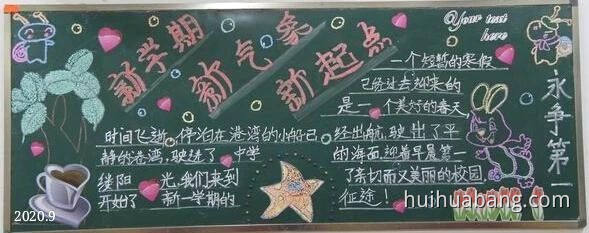 新学期
新气象
新起点
Your text
here
一个短暂的寒假
已经过去迎来的
是一个美好的春天
永争第一
时间飞逝,停泊在港湾的小船已经出航,驶出了平
静的港湾,驶进了 中学的海面,迎着早晨第一
缕阳 光,我们来到了亲切而又美丽的校园,
开始了 新一学期的征途!
2020.9
huihuabang.com